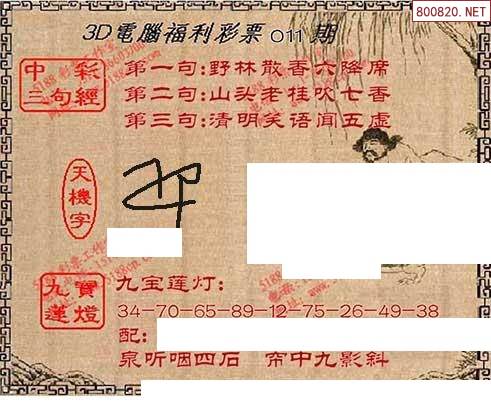 800820.NET
3D電腦福利彩票 011 期
中彩
三句經
第一句:野林散香六降席
第二句:山头老桂吹七香
第三句:清明笑语闻五虚
天機字
九寶
蓮燈
九宝莲灯:
34-70-65-89-12-75-26-49-38
配:
泉听咽四石 帘中九影斜